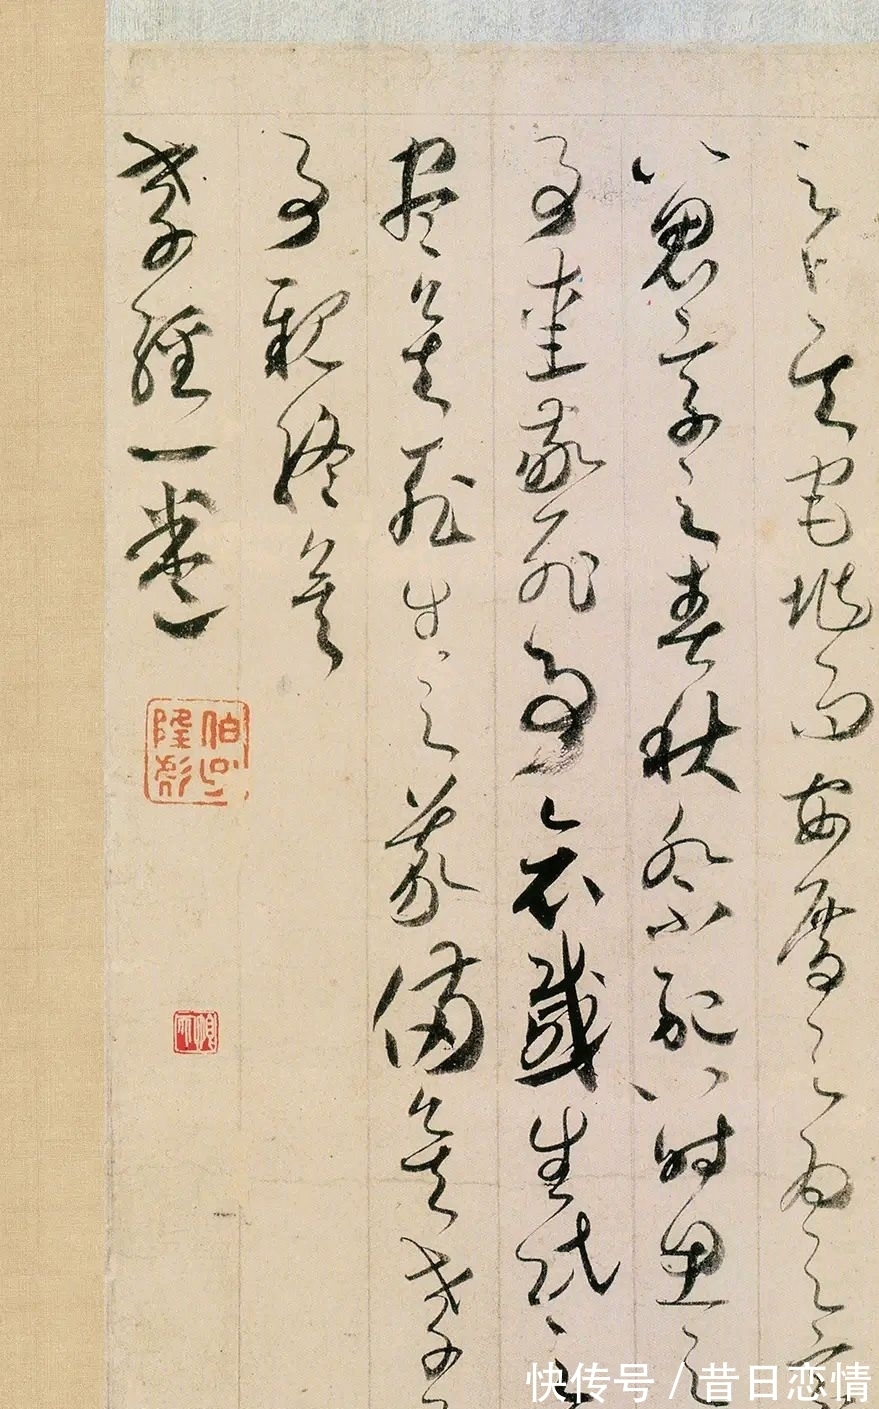 之卜其宅垗而安厝之為之宗
以鬼享之春秋祭祀以時思之
事愛敬死事哀慼生民之
盡矣死生之義備矣孝子
事親終矣
孝經一卷
快传号 / 昔日恋情